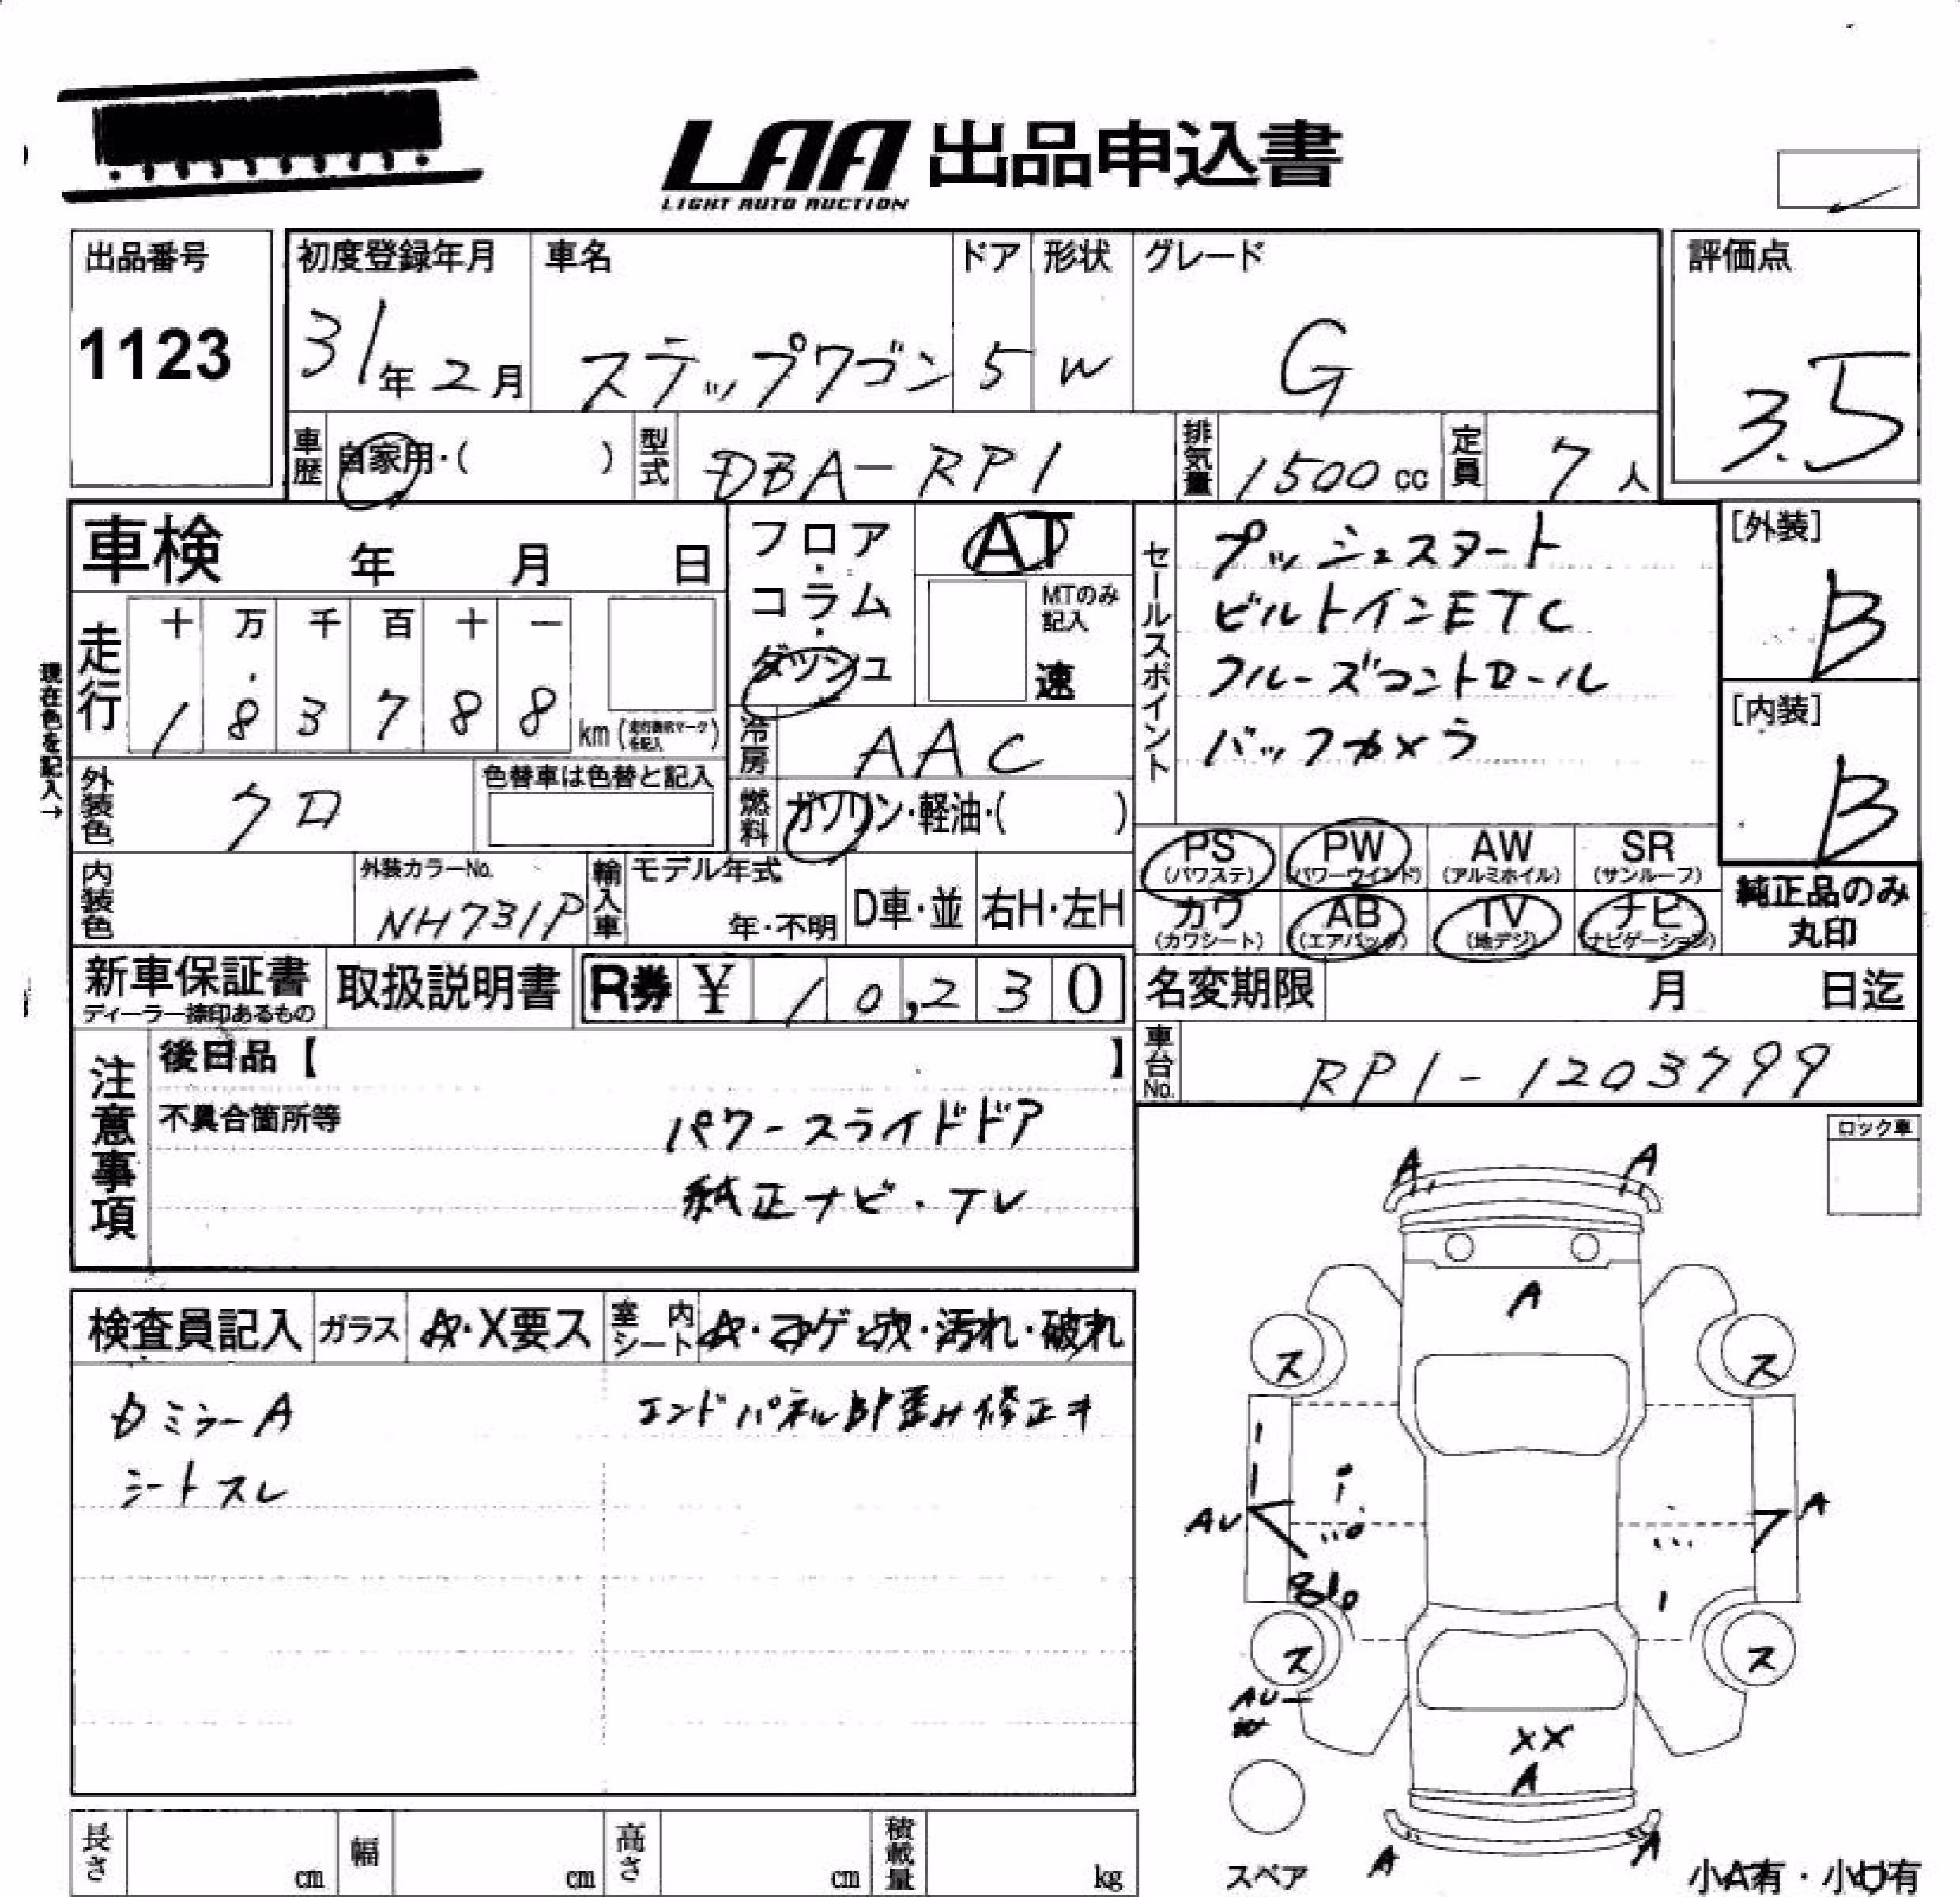 LAA 出品申込書
LIGHT AUTO AUCTION
出品番号
1123
初度登録年月
31年2月
車名
ステップワゴン
ドア
5
形状
W
グレード
G
評価点
3.5
車歴
自家用・( )
型式
DBA-RP1
排気量
1500cc
定員
7人
車検 年 月 日
フロア・コラム・ダッシュ
AT
MTのみ記入
速
セールスポイント
プッシュスタート
ビルトインETC
クルーズコントロール
バックカメラ
[外装]
B
[内装]
B
現在色を記入→
走行
十 万 千 百 十 一
1 8 3 7 8 8 km
冷房
AAC
外装色
クロ
色替車は色替と記入
燃料
ガソリン・軽油・( )
PS (パワステ)
PW (パワーウインド)
AW (アルミホイル)
SR (サンルーフ)
カワ (カワシート)
AB (エアバック)
TV (地デジ)
ナビ (ナビゲーション)
純正品のみ丸印
内装色
外装カラーNo.
NH731P
輸入車
モデル年式
年・不明
D車・並
右H・左H
新車保証書
ディーラー捺印あるもの
取扱説明書
R券 ¥ 10,230
名変期限 月 日迄
車台No.
RP1-1203799
注意事項
後日品【 】
不具合箇所等
パワースライドドア
純正ナビ・TV
ロック車
検査員記入
ガラス
A・X要ス
室内シート
A・コゲ・穴・汚れ・破れ
ミラーA
エンドパネル
修正キ
シートスレ
A A
A
ス ス
AU A
ス ス
AU
XX
A
A A
スペア
小A有・小U有
長さ cm
幅 cm
高さ cm
積載量 kg